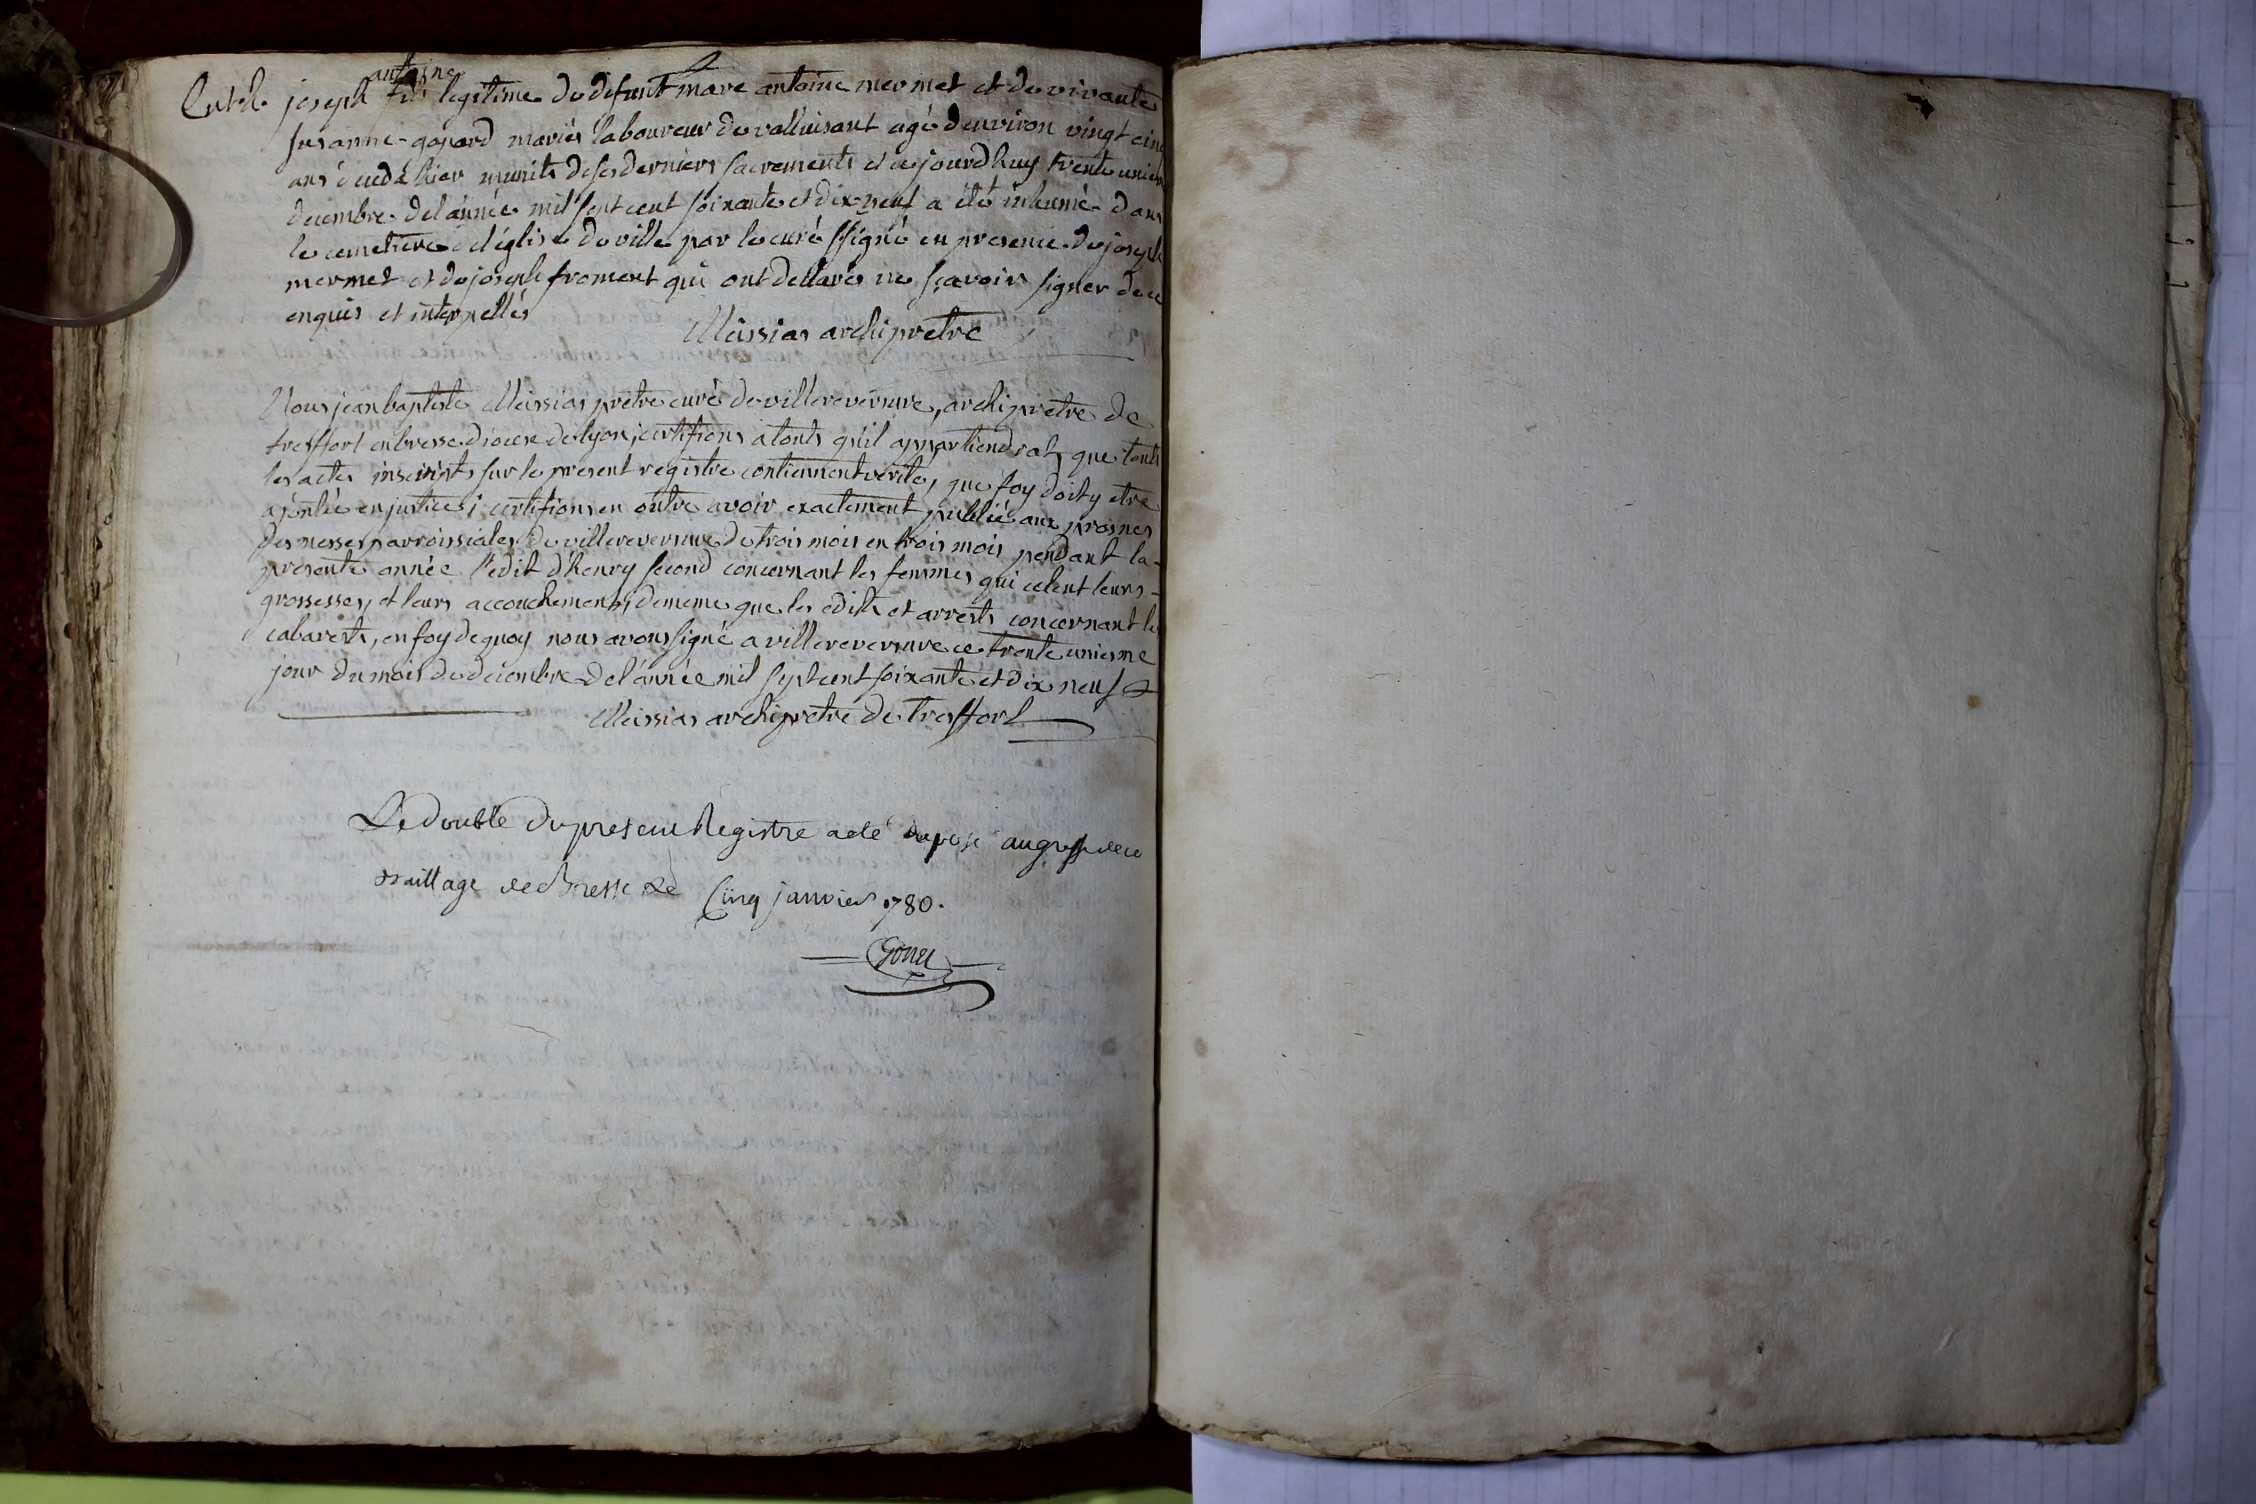 antoine
joseph fils legitime du defunt marc antoine mermet et de vivante
susanne gonard mariés laboureur de valluisant agé d'environ vingt cinq
ans décédé hier munits de ses derniers sacrements et aujourdhuy trente unieme
decembre de l'année mil sept cent soixante et dix neuf a été inhumé dans
le cemetiere de l'église de ville par le curé ssigné en presence de joseph
mermet et de joseph froment qui ont dellarés ne sçavoir signer de ce
enquis et interpellés
Meissias archiprêtre
Nous jean baptiste Meissias prêtre curé de villereversure, archiprêtre de
treffort en bresse diocese de lyon, certifions a touts qu'il appartiendrat, que touts
les actes inscripts sur le present registre contiennent verité, que foy doit y etre
ajoutée en justice; certifions en outre avoir exactement publié aux prosnes
des messes parroissiales de villereversure de trois mois en trois mois pendant la
presente année l'edit d'henry second concernant les femmes qui celent leurs
grossesses, et leurs accouchements, de meme que les edits et arrests concernant les
cabarests, en foy de quoy nous avons signé a villereversure ce trente uniesme
jour du mois de decembre de l'année mil sept cent soixante et dix neuf
Meissias archiprêtre de Treffort
Le double du present Registre a eté deposé au greffe de ce
Bailliage de Bresse Le Cinq janvier 1780.